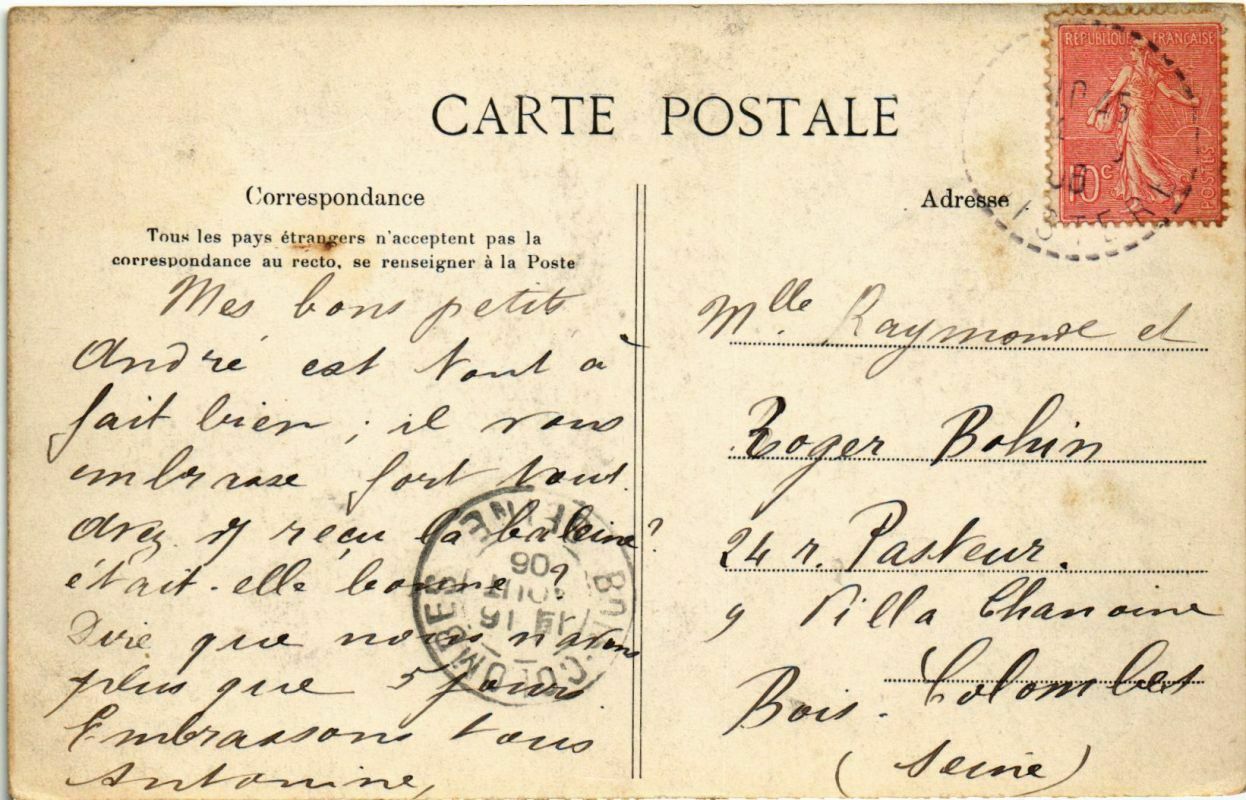 CARTE POSTALE
RÉPUBLIQUE FRANÇAISE
10c
POSTES
Correspondance
Tous les pays étrangers n'acceptent pas la
correspondance au recto, se renseigner à la Poste
Mes bons petits
André est tout à
fait bien ; il vous
embrasse fort tout.
avez reçu la baleine ?
était-elle bonne ?
Dire que nous n'avons
plus que 5 jours
Embrassons tous
Antonine,
Adresse
Mlle. Raymonde et
Roger Bohin
24 r. Pasteur.
9 Villa Chanoine
Bois-Colombes
(Seine)
BOIS-COLOMBES SEINE
16
AOUT
06